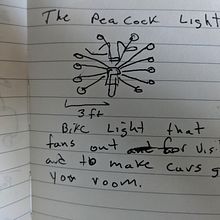 The Peacock Light
3 ft
Bike Light that
fans out for Vis
and to make cars g
you room.